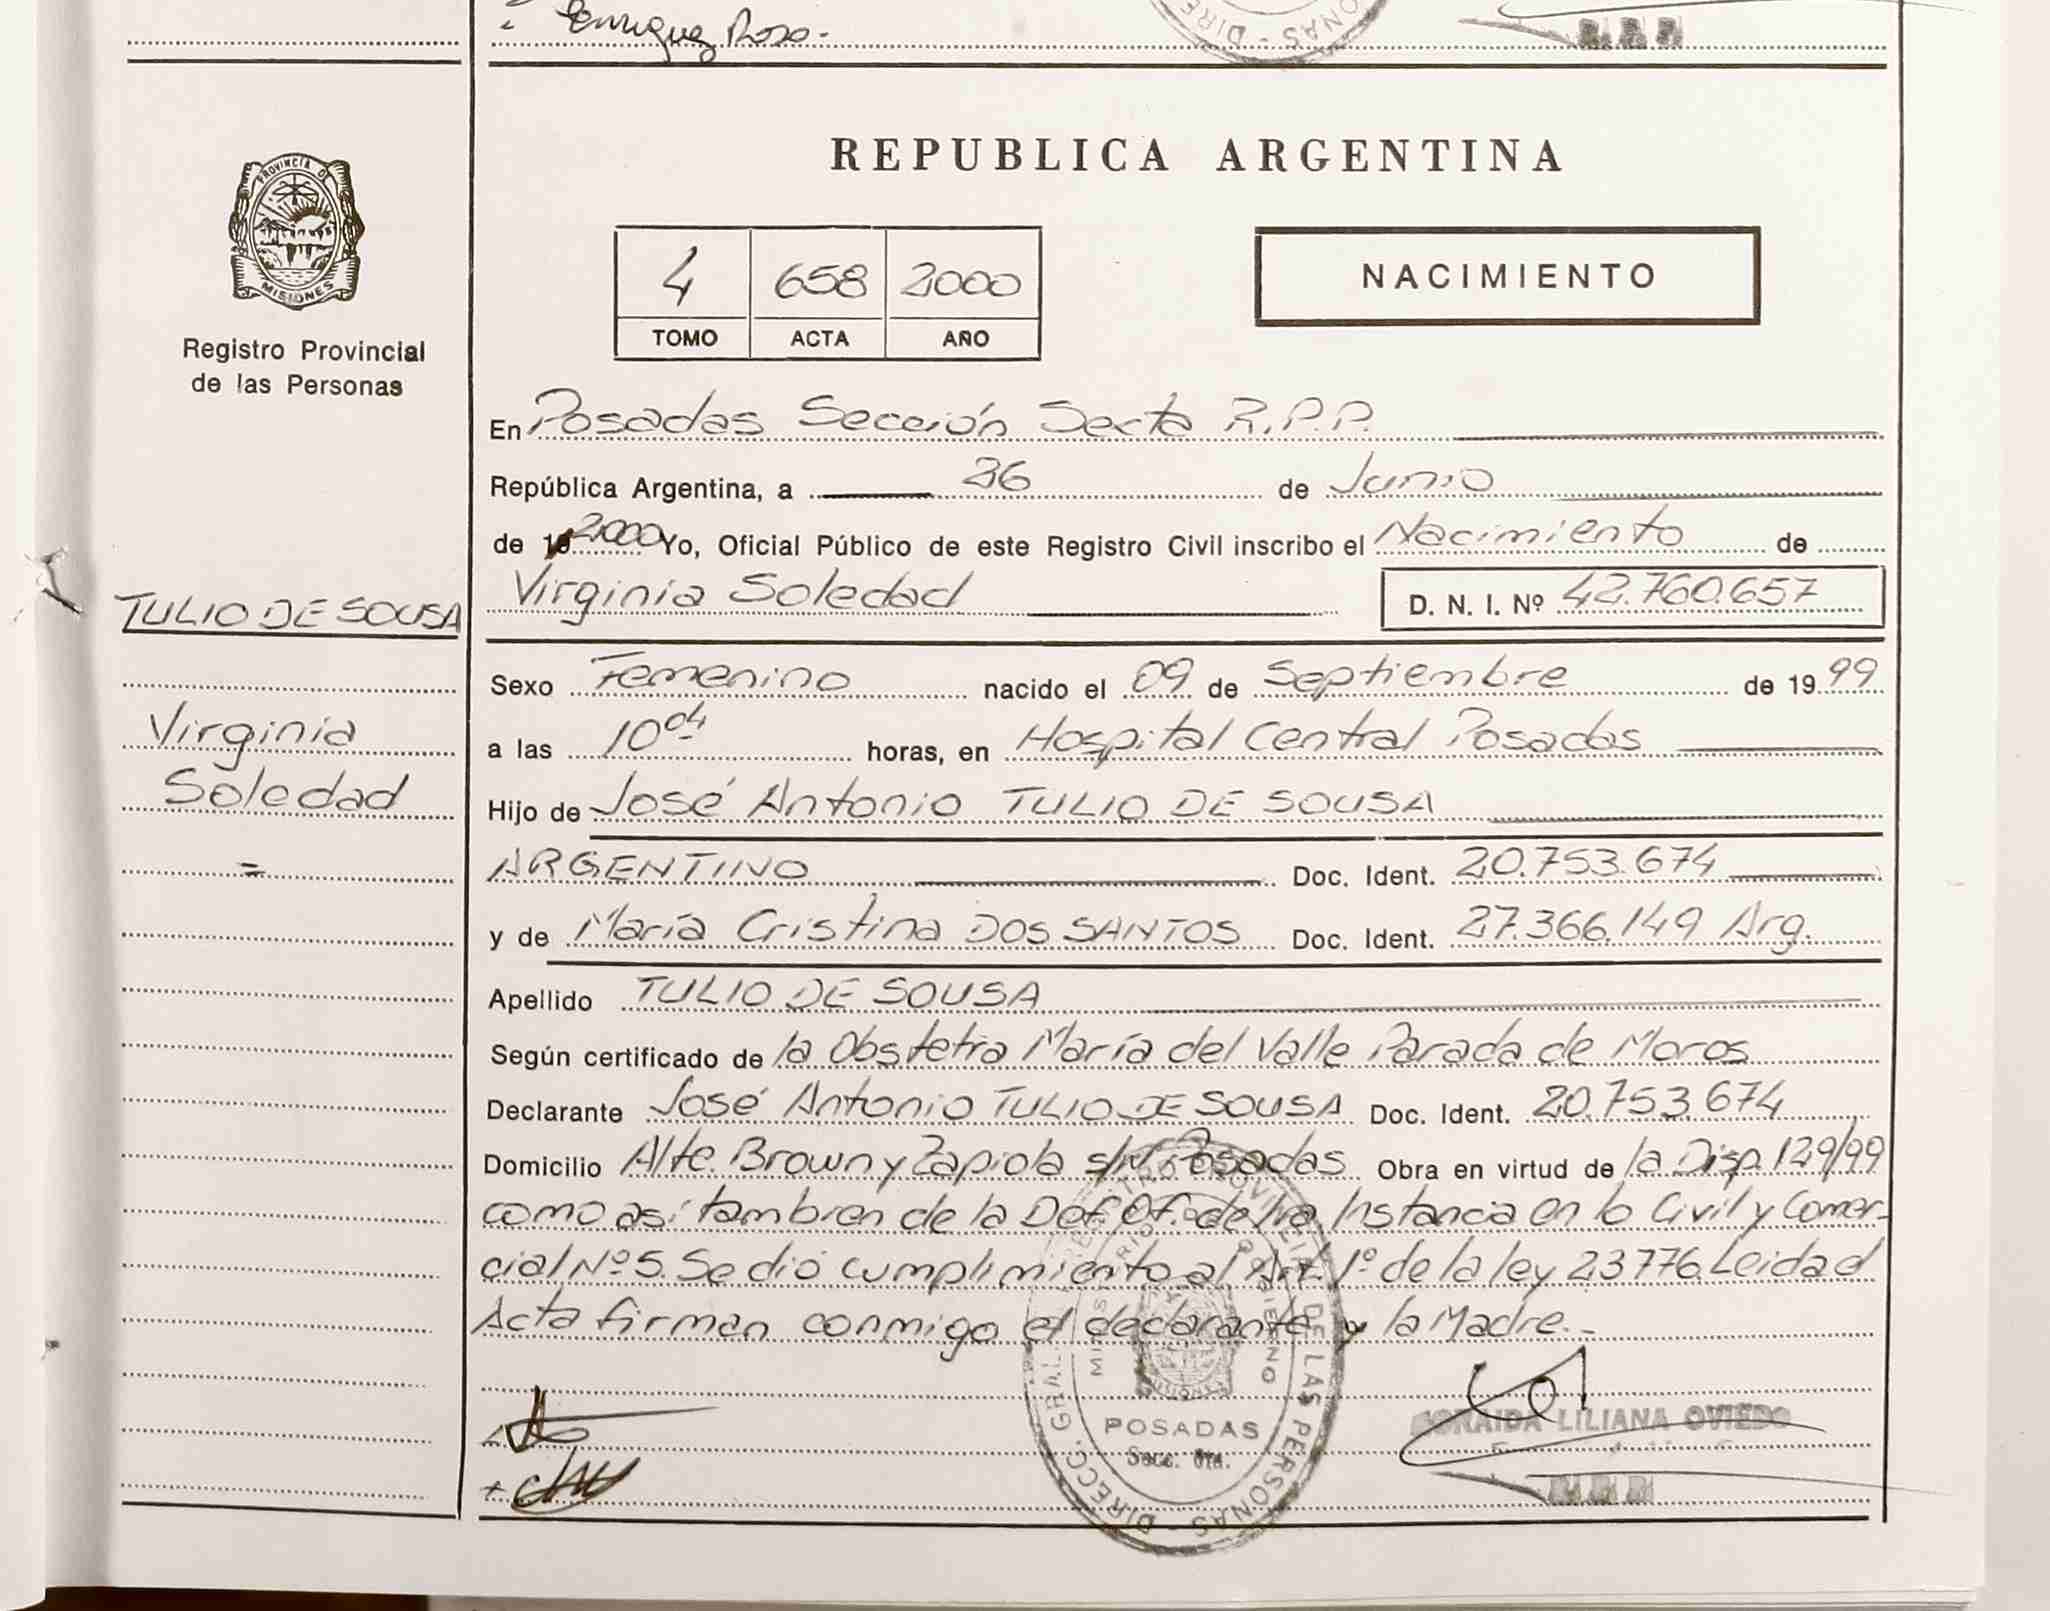 Enrique Roso.
PROVINCIA DE
MISIONES
Registro Provincial
de las Personas
TULIO DE SOUSA
Virginia
Soledad
=
REPUBLICA ARGENTINA
4 658 2000
TOMO ACTA AÑO
NACIMIENTO
En Posadas Sección Sexta R.P.P.
República Argentina, a 26 de Junio
de 19 2000 Yo, Oficial Público de este Registro Civil inscribo el Nacimiento de
Virginia Soledad D. N. I. Nº 42.760.657
Sexo Femenino nacido el 09 de Septiembre de 19 99
a las 10 04 horas, en Hospital Central Posadas
Hijo de José Antonio TULIO DE SOUSA
ARGENTINO Doc. Ident. 20.753.674
y de María Cristina DOS SANTOS Doc. Ident. 27.366.149 Arg.
Apellido TULIO DE SOUSA
Según certificado de la Obstetra María del Valle Parada de Moros
Declarante José Antonio TULIO DE SOUSA Doc. Ident. 20.753.674
Domicilio Alte. Brown y Zapiola s/Nº Posadas Obra en virtud de la Disp. 129/99
como así tambien de la Def. Of. de 1ra. Instancia en lo Civil y Comer-
cial Nº 5. Se dió cumplimiento al Art. 1º de la ley 23776. Leida el
Acta firman conmigo el declarante y la Madre.-
DIRECC. GRAL. DE LAS PERSONAS
POSADAS
Secc. 6ta.
SORAIDA LILIANA OVIEDO